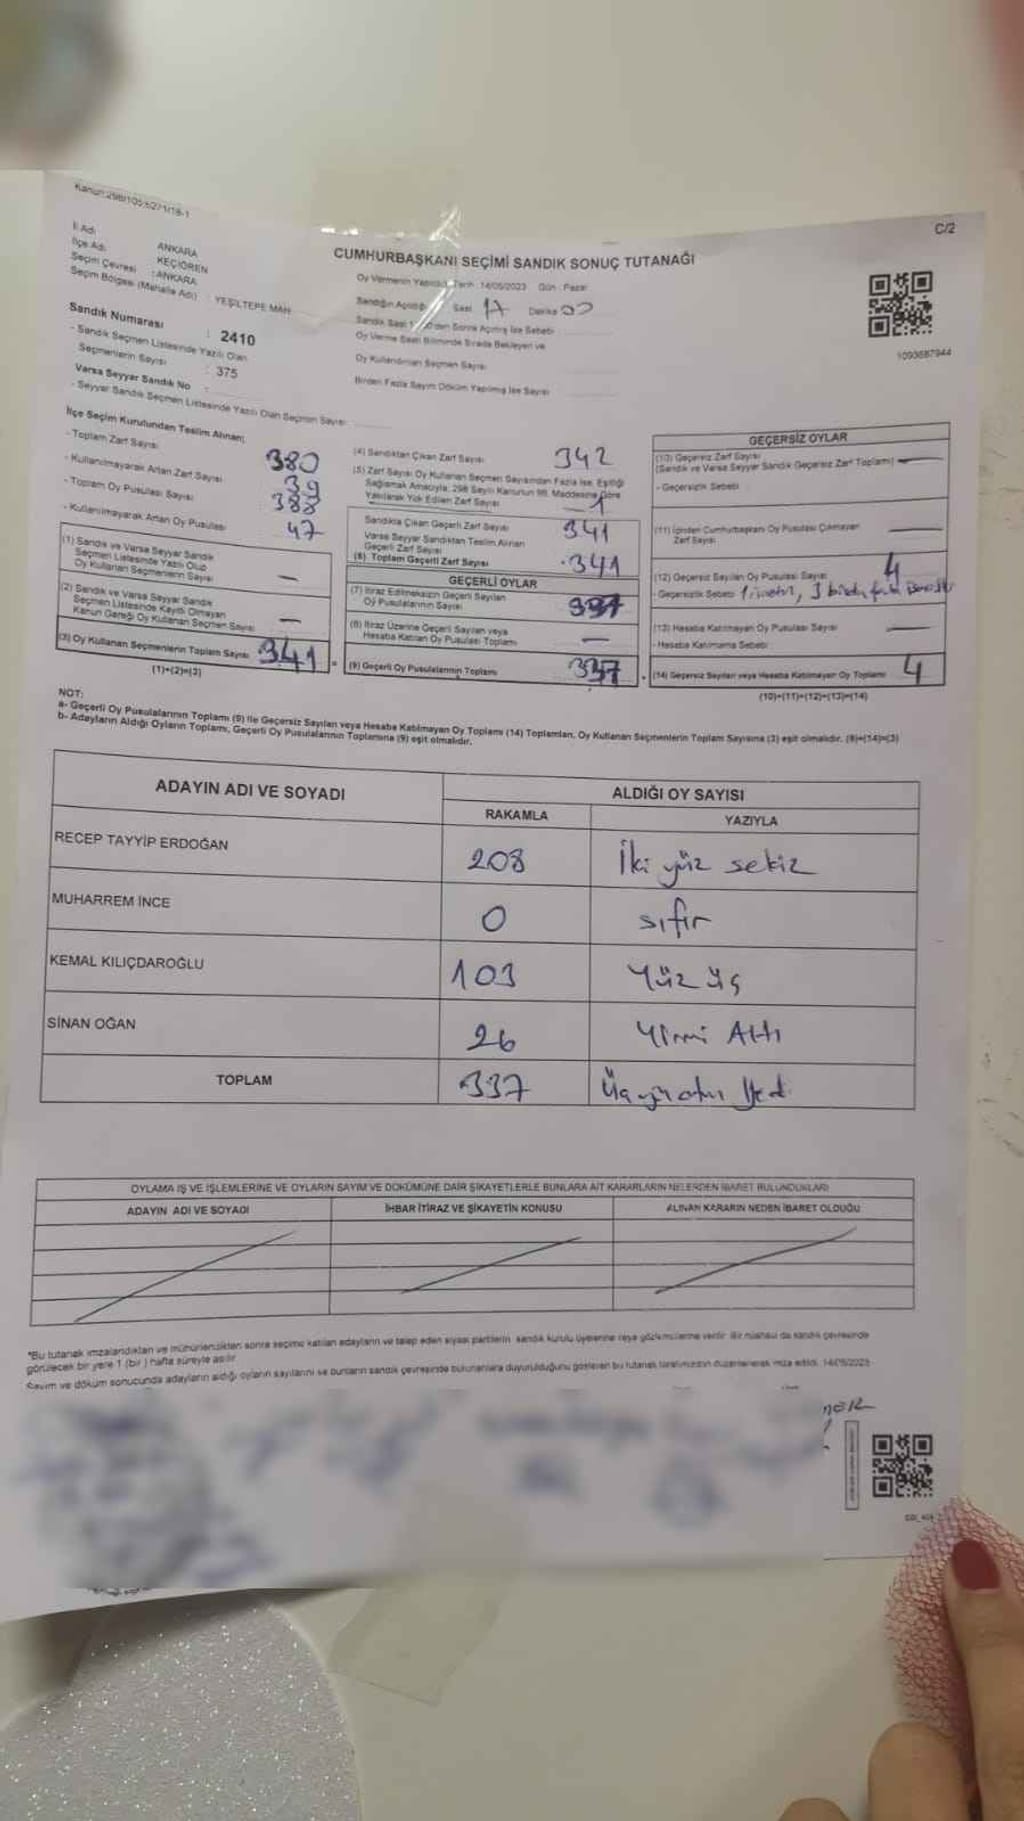 Kanun:298/105;6271/18-1
C/2
İl Adı : ANKARA
İlçe Adı : KEÇİÖREN
Seçim Çevresi : ANKARA
Seçim Bölgesi (Mahalle Adı) : YEŞİLTEPE MAH.
Sandık Numarası : 2410
- Sandık Seçmen Listesinde Yazılı Olan
Seçmenlerin Sayısı : 375
Varsa Seyyar Sandık No :
- Seyyar Sandık Seçmen Listesinde Yazılı Olan Seçmen Sayısı
CUMHURBAŞKANI SEÇİMİ SANDIK SONUÇ TUTANAĞI
Oy Vermenin Yapıldığı Tarih : 14/05/2023 Gün : Pazar
Sandığın Açıldığı Saat 17 Dakika 00
Oy Verme Saati Bitiminde Sırada Bekleyen ve
Oy Kullandırılan Seçmen Sayısı
Birden Fazla Sayım Döküm Yapılmış İse Sayısı
1093687944
İlçe Seçim Kurulundan Teslim Alınan;
- Toplam Zarf Sayısı 380
- Kullanılmayarak Artan Zarf Sayısı 39
- Toplam Oy Pusulası Sayısı 388
- Kullanılmayarak Artan Oy Pusulası 47
(1) Sandık ve Varsa Seyyar Sandık
Seçmen Listesinde Yazılı Olup
Oy Kullanan Seçmenlerin Sayısı —
(2) Sandık ve Varsa Seyyar Sandık
Seçmen Listesinde Kayıtlı Olmayan
Kanun Gereği Oy Kullanan Seçmen Sayısı —
(3) Oy Kullanan Seçmenlerin Toplam Sayısı 341
(1)+(2)=(3)
(4) Sandıktan Çıkan Zarf Sayısı 342
(5) Zarf Sayısı Oy Kullanan Seçmen Sayısından Fazla İse, Eşitliği
Sağlamak Amacıyla, 298 Sayılı Kanunun 98. Maddesine Göre
Yakılarak Yok Edilen Zarf Sayısı 1
Sandıkta Çıkan Geçerli Zarf Sayısı 341
Varsa Seyyar Sandıktan Teslim Alınan
Geçerli Zarf Sayısı
(6) Toplam Geçerli Zarf Sayısı 341
GEÇERLİ OYLAR
(7) İtiraz Edilmeksizin Geçerli Sayılan
Oy Pusulalarının Sayısı 337
(8) İtiraz Üzerine Geçerli Sayılan veya
Hesaba Katılan Oy Pusulası Toplamı —
(9) Geçerli Oy Pusulalarının Toplamı 337
GEÇERSİZ OYLAR
(10) Geçersiz Zarf Sayısı
(Sandık ve Varsa Seyyar Sandık Geçersiz Zarf Toplamı) —
- Geçersizlik Sebebi
(11) İçinden Cumhurbaşkanı Oy Pusulası Çıkmayan
Zarf Sayısı —
(12) Geçersiz Sayılan Oy Pusulası Sayısı 4
- Geçersizlik Sebebi 3 birden fazla
(13) Hesaba Katılmayan Oy Pusulası Sayısı —
- Hesaba Katılmama Sebebi
(14) Geçersiz Sayılan veya Hesaba Katılmayan Oy Toplamı 4
(10)+(11)+(12)+(13)=(14)
NOT:
a- Geçerli Oy Pusulalarının Toplamı (9) ile Geçersiz Sayılan veya Hesaba Katılmayan Oy Toplamı (14) Toplamları, Oy Kullanan Seçmenlerin Toplam Sayısına (3) eşit olmalıdır. (9)+(14)=(3)
b- Adayların Aldığı Oyların Toplamı, Geçerli Oy Pusulalarının Toplamına (9) eşit olmalıdır.
ADAYIN ADI VE SOYADI ALDIĞI OY SAYISI
RAKAMLA YAZIYLA
RECEP TAYYİP ERDOĞAN 208 İki yüz sekiz
MUHARREM İNCE 0 sıfır
KEMAL KILIÇDAROĞLU 103 Yüz üç
SİNAN OĞAN 26 Yirmi Altı
TOPLAM 337 Üçyüz otuz Yedi
OYLAMA İŞ VE İŞLEMLERİNE VE OYLARIN SAYIM VE DÖKÜMÜNE DAİR ŞİKAYETLERLE BUNLARA AİT KARARLARIN NELERDEN İBARET BULUNDUKLARI
ADAYIN ADI VE SOYADI İHBAR İTİRAZ VE ŞİKAYETİN KONUSU ALINAN KARARIN NEDEN İBARET OLDUĞU
*Bu tutanak imzalandıktan ve mühürlendikten sonra seçime katılan adayların ve talep eden siyasi partilerin sandık kurulu üyelerine veya gözlemcilerine verilir. Bir nüshası da sandık çevresinde
görülecek bir yere 1 (bir) hafta süreyle asılır.
Sayım ve döküm sonucunda adayların aldığı oyların sayılarını ve bunların sandık çevresinde bulunanlara duyurulduğunu gösteren bu tutanak tarafımızdan düzenlenerek imza edildi. 14/05/2023